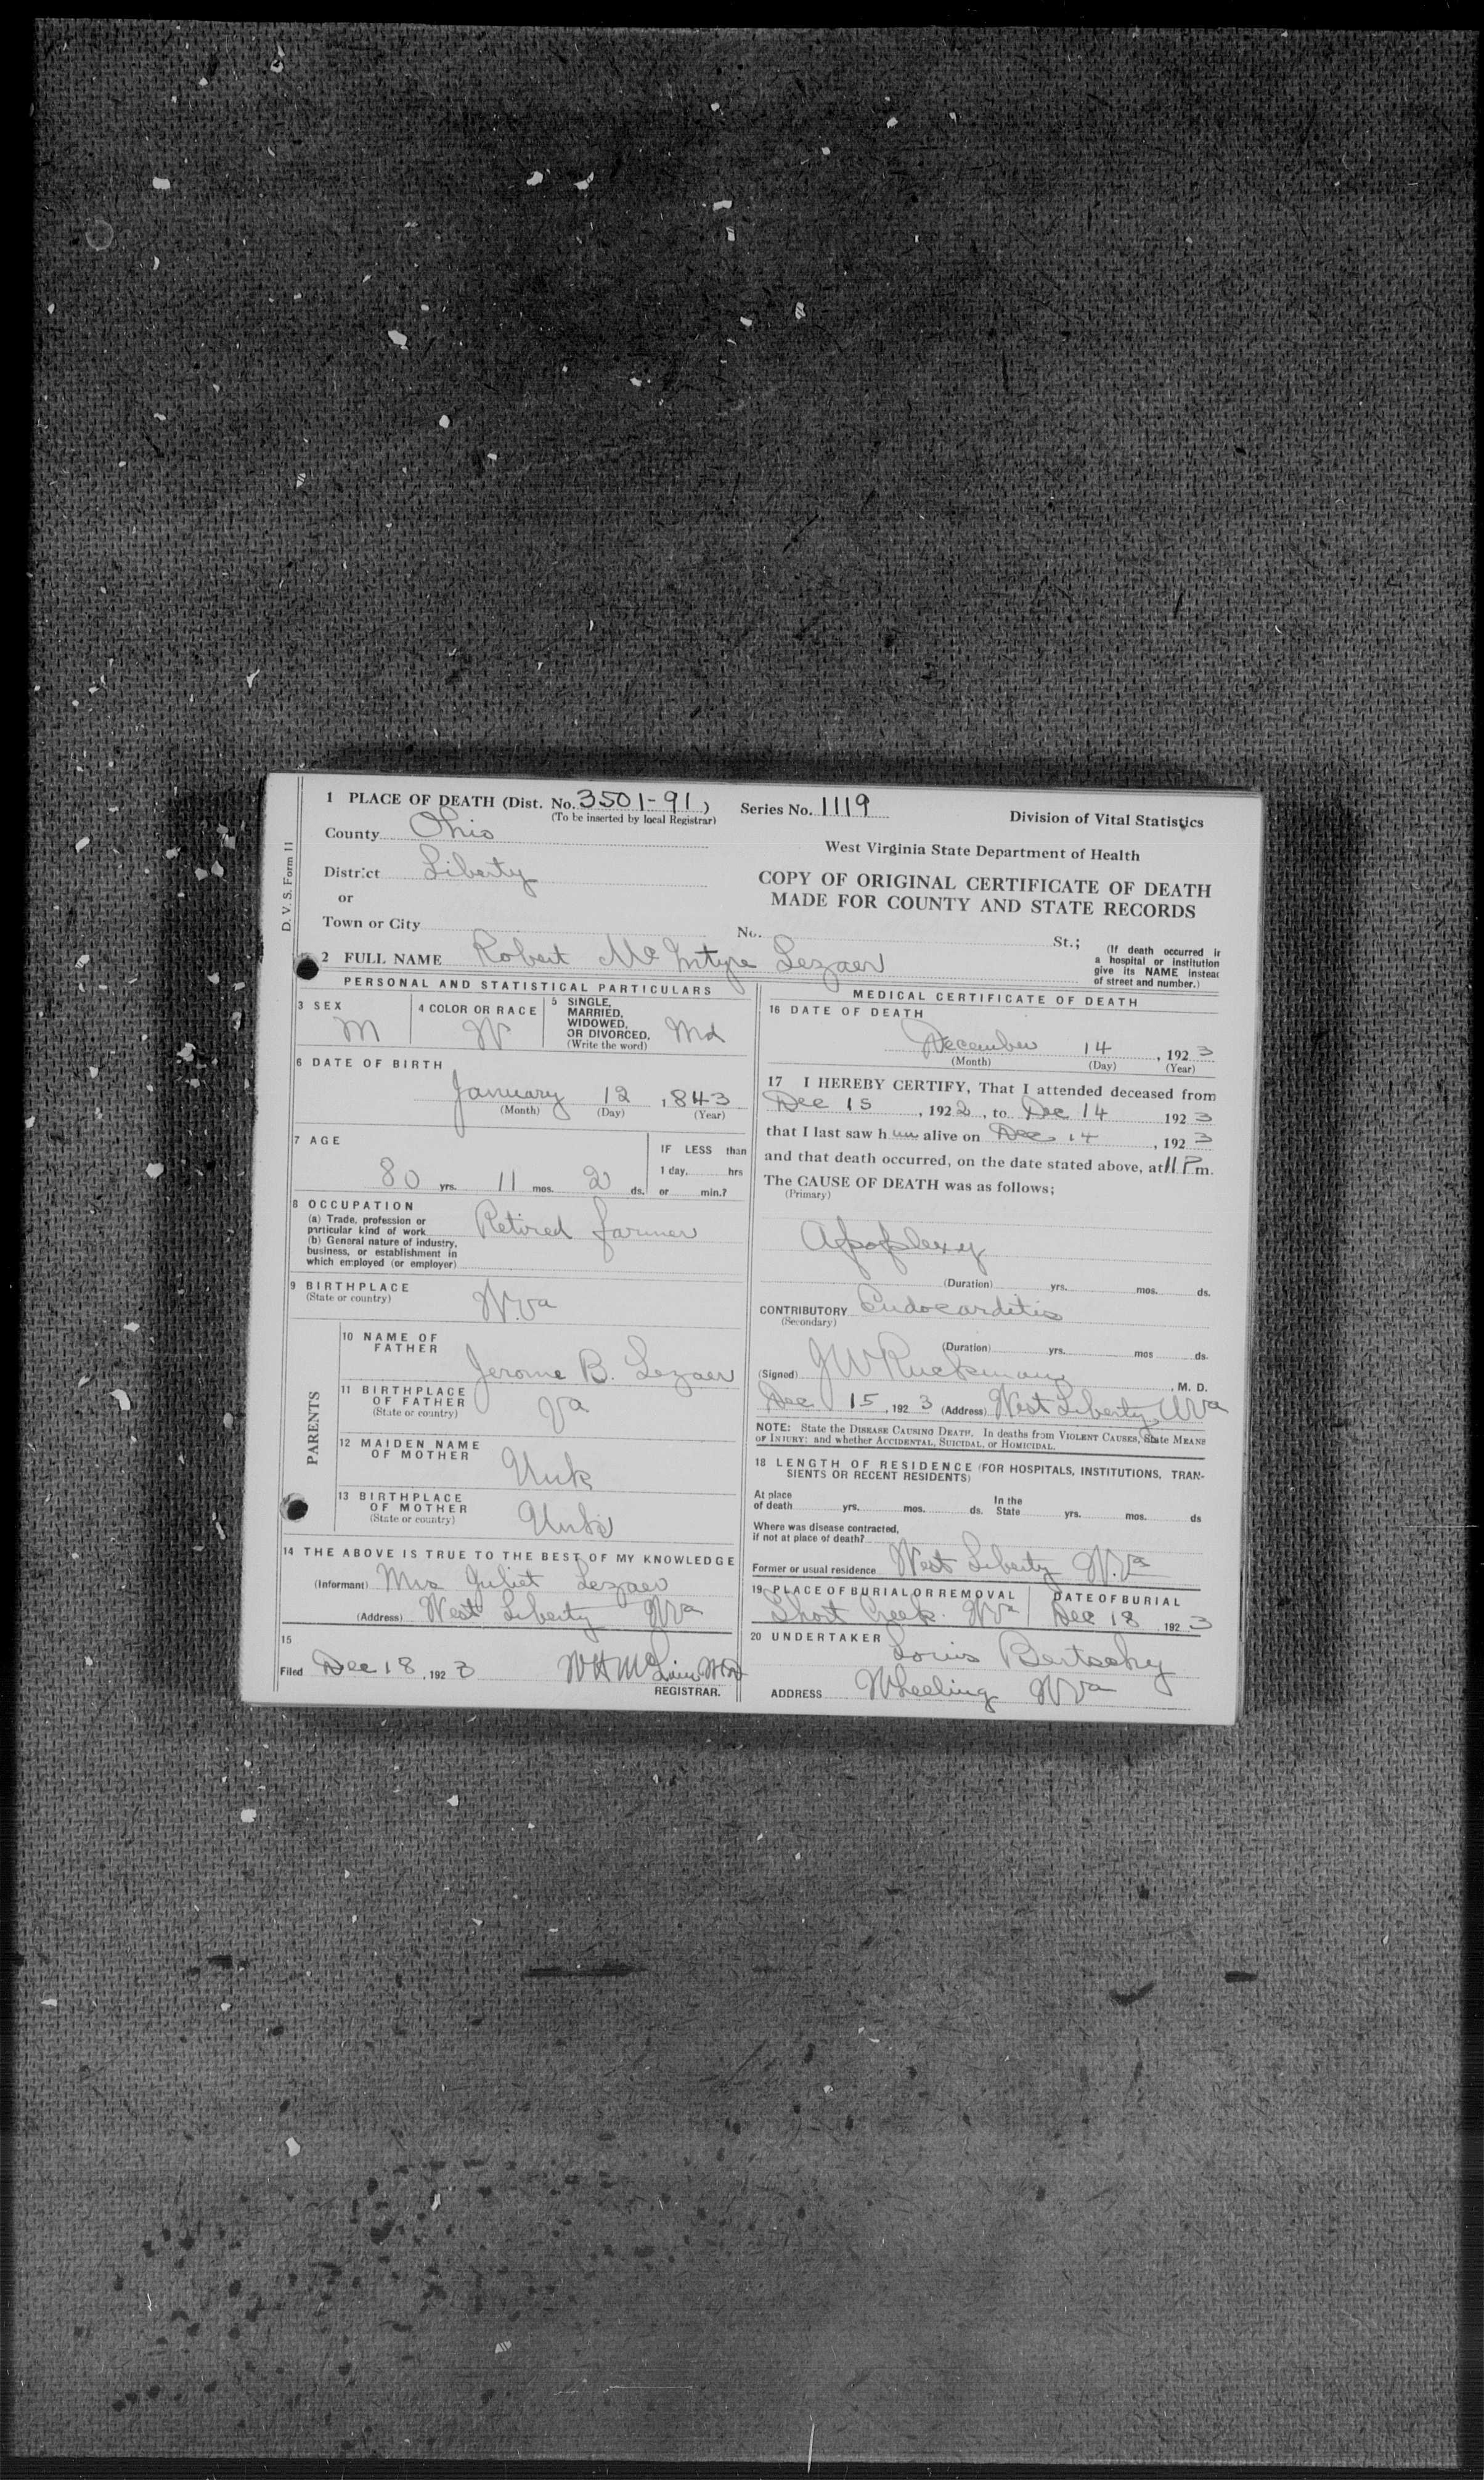 D. V. S. Form 11
1 PLACE OF DEATH (Dist. No. 3501-91)
(To be inserted by local Registrar)
Series No. 1119
Division of Vital Statistics
County Ohio
West Virginia State Department of Health
District Liberty
COPY OF ORIGINAL CERTIFICATE OF DEATH
MADE FOR COUNTY AND STATE RECORDS
or
Town or City
No. St.;
(If death occurred in
a hospital or institution
give its NAME instead
of street and number.)
2 FULL NAME Robert McIntyre Lezaer
PERSONAL AND STATISTICAL PARTICULARS
3 SEX
M
4 COLOR OR RACE
W
5 SINGLE,
MARRIED,
WIDOWED,
OR DIVORCED,
(Write the word)
Md
6 DATE OF BIRTH
January 12, 843
(Month) (Day) (Year)
7 AGE
80 yrs. 11 mos. 2 ds.
IF LESS than
1 day, hrs
or min.?
8 OCCUPATION
(a) Trade, profession or
particular kind of work Retired farmer
(b) General nature of industry,
business, or establishment in
which employed (or employer)
9 BIRTHPLACE
(State or country)
W.Va
PARENTS
10 NAME OF
FATHER
Jerome B. Lezaer
11 BIRTHPLACE
OF FATHER
(State or country)
Va
12 MAIDEN NAME
OF MOTHER
Unk
13 BIRTHPLACE
OF MOTHER
(State or country)
Unk
14 THE ABOVE IS TRUE TO THE BEST OF MY KNOWLEDGE
(Informant) Mrs Juliet Lezaer
(Address) West Liberty WVa
15
Filed Dec 18, 1923
REGISTRAR.
MEDICAL CERTIFICATE OF DEATH
16 DATE OF DEATH
December 14, 1923
(Month) (Day) (Year)
17 I HEREBY CERTIFY, That I attended deceased from
Dec 15, 1922, to Dec 14 1923
that I last saw him alive on Dec 14, 1923
and that death occurred, on the date stated above, at 11 P.m.
The CAUSE OF DEATH was as follows;
(Primary)
Apoplexy
(Duration) yrs. mos. ds.
CONTRIBUTORY Endocarditis
(Secondary)
(Duration) yrs. mos ds.
(Signed) J W Ruckman, M. D.
Dec 15, 1923 (Address) West Liberty WVa
NOTE: State the DISEASE CAUSING DEATH. In deaths from VIOLENT CAUSES, State MEANS
OF INJURY; and whether ACCIDENTAL, SUICIDAL, or HOMICIDAL.
18 LENGTH OF RESIDENCE (FOR HOSPITALS, INSTITUTIONS, TRAN-
SIENTS OR RECENT RESIDENTS)
At place
of death yrs. mos. ds. In the
State yrs. mos. ds
Where was disease contracted,
if not at place of death?
Former or usual residence West Liberty W.Va
19 PLACE OF BURIAL OR REMOVAL
Short Creek. WVa
DATE OF BURIAL
Dec 18 1923
20 UNDERTAKER
Louis Bertschy
ADDRESS Wheeling WVa